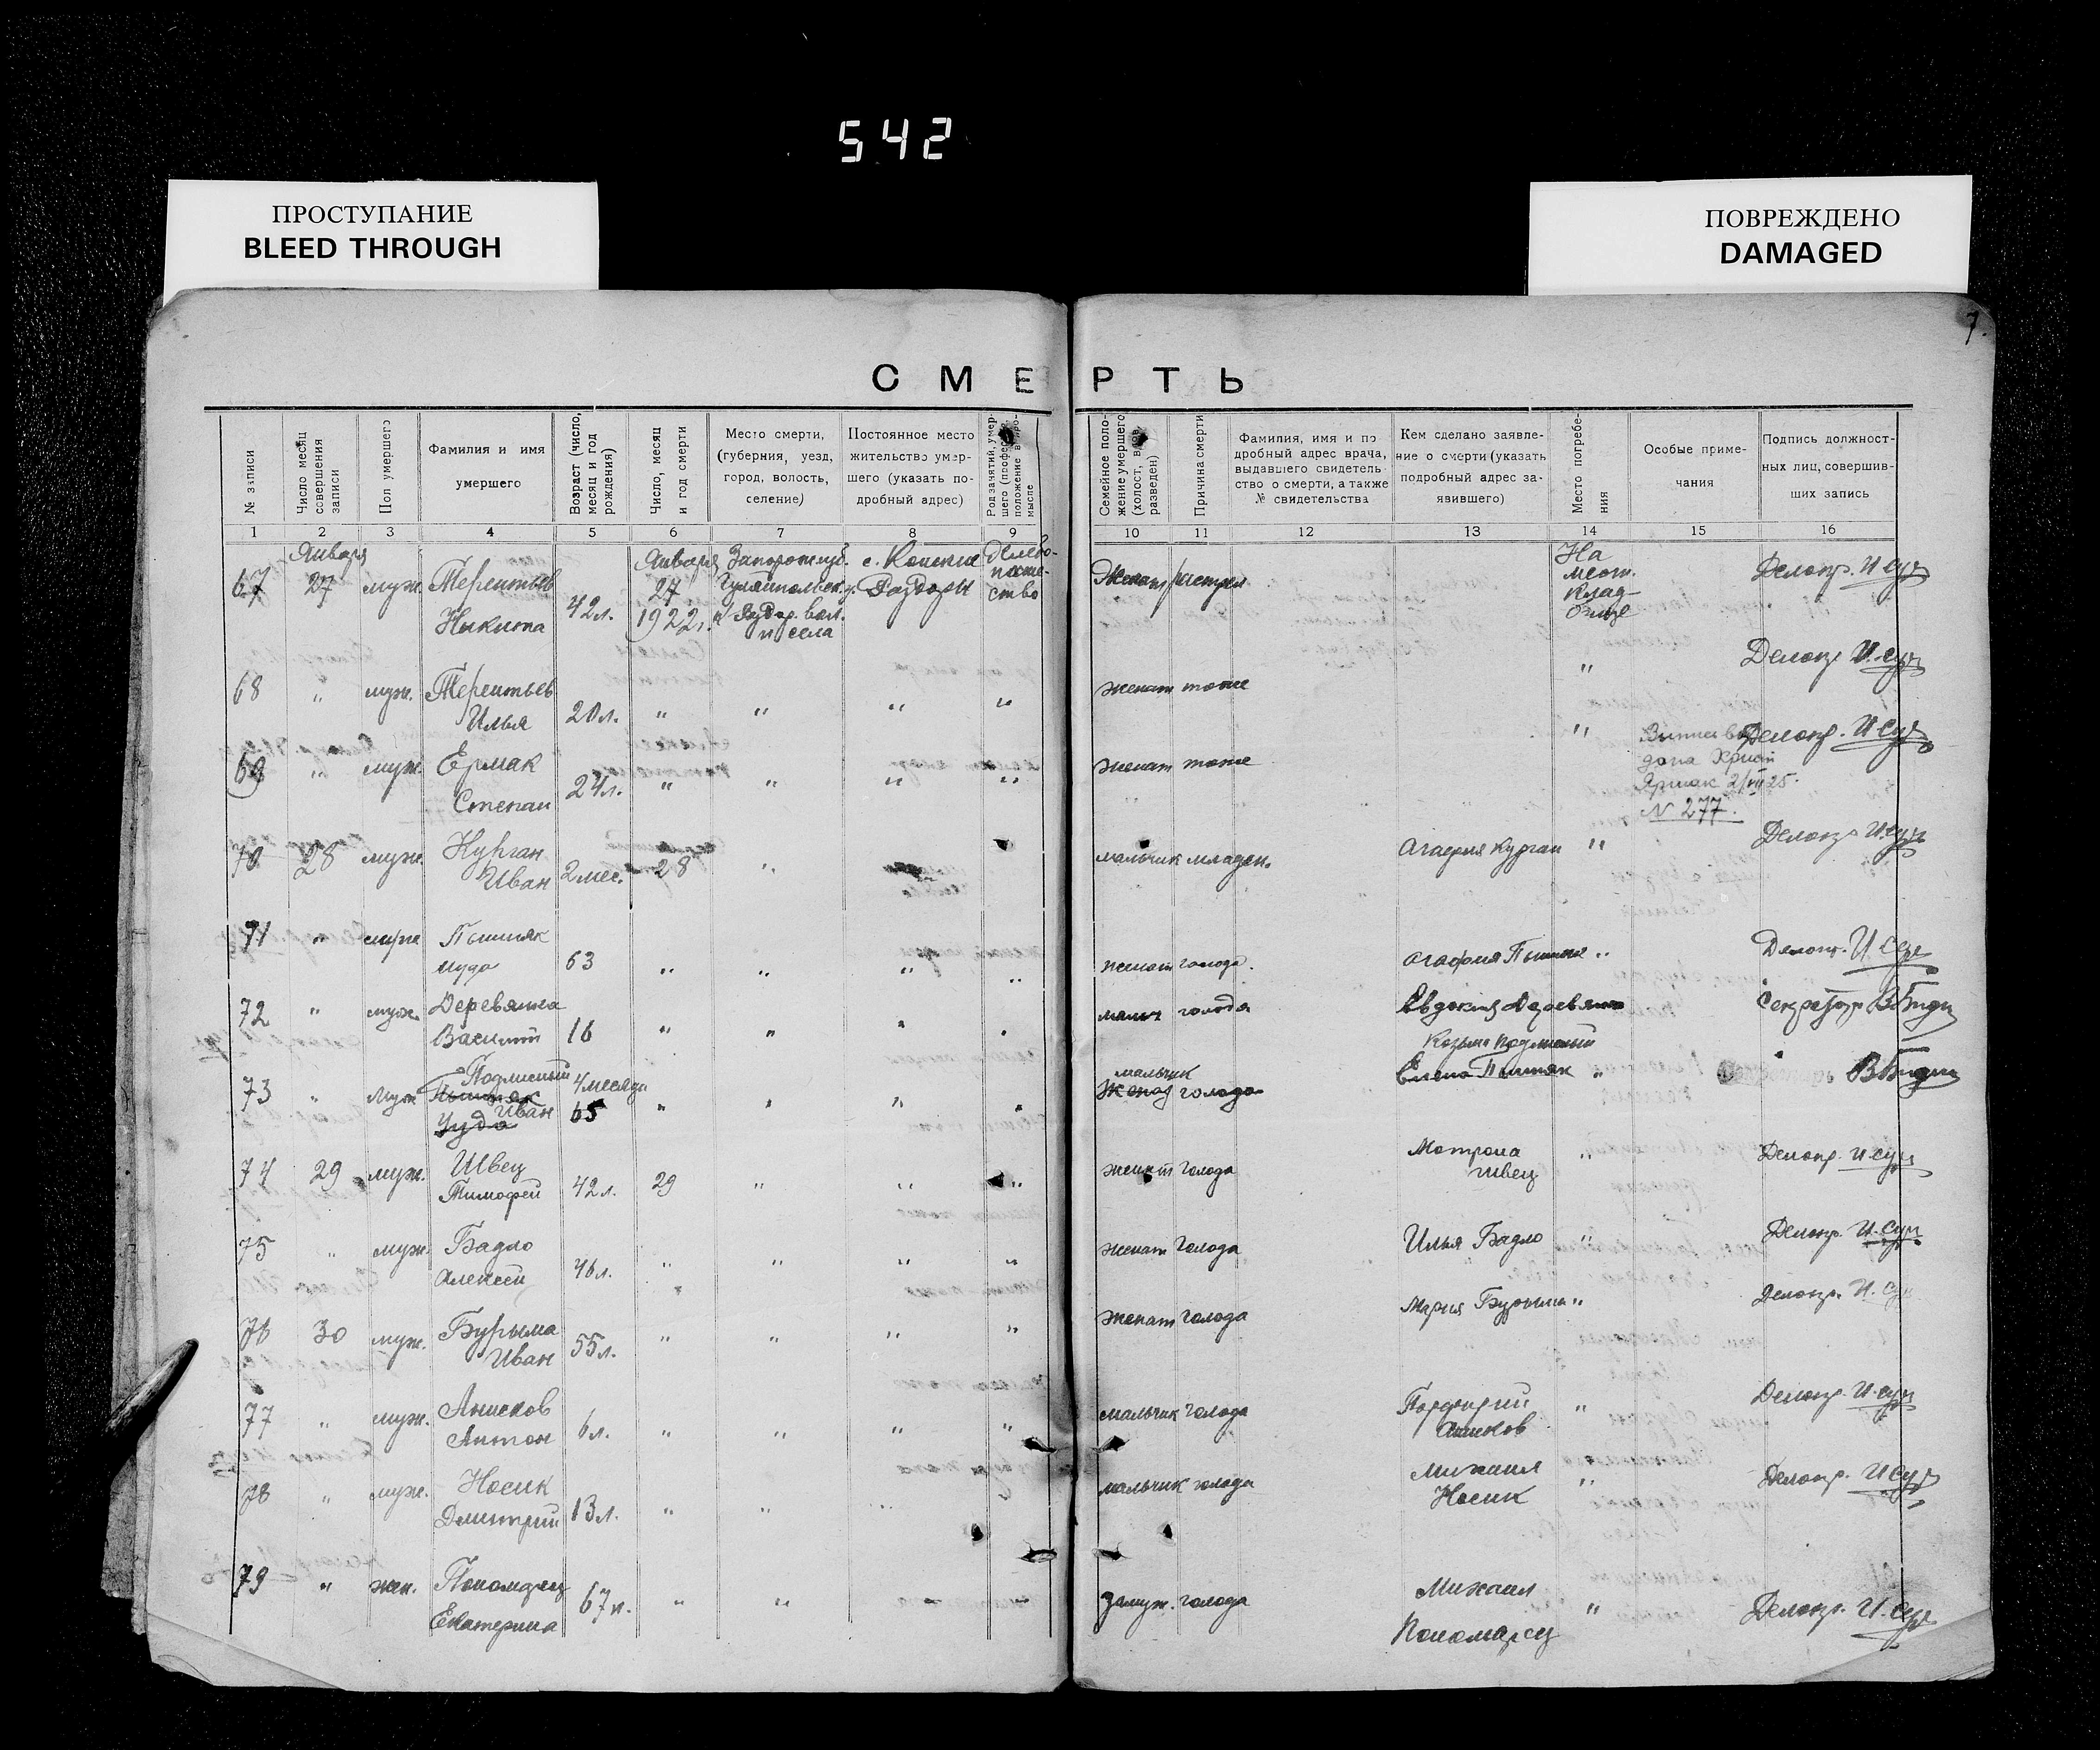 542
ПРОСТУПАНИЕ
BLEED THROUGH
ПОВРЕЖДЕНО
DAMAGED
7.
СМЕРТЬ
№ записи
Число месяц совершения записи
Пол умершего
Фамилия и имя умершего
Возраст (число, месяц и год рождения)
Число, месяц и год смерти
Место смерти, (губерния, уезд, город, волость, селение)
Постоянное место жительство умершего (указать подробный адрес)
Семейное положение умершего (холост, вдов, разведен)
Причина смерти
Фамилия, имя и подробный адрес врача, выдавшего свидетельство о смерти, а также № свидетельства
Кем сделано заявление о смерти (указать подробный адрес заявившего)
Место погребения
Особые примечания
Подпись должностных лиц, совершивших запись
1 2 3 4 5 6 7 8 9 10 11 12 13 14 15 16
Января Января с. Конские На
67 27 муж. Терентьев 27 Раздоры Женат расстрел мест. Делопр. И Сур
Никита 42л. 1922г. и села клад-
68 " муж. Терентьев женат тоже " Делопр. И. Сур
Илья 20л. " " " "
69 " муж. Ермак женат тоже " Делопр. И Сур
Степан 24л. " " " "
Ярмак 2/VII 25.
N 277.
70 28 муж. Курган мальчик младен. Агафия Курган " Делопр И. Сур
Иван 2 мес. 28 "
71 " муж Пышняк женат голода. Агафия " Делопр. И. Сур
Иуда 63 " " " "
72 " муж. Деревянка мальч голода Евдокия Секретарь
Василий 16 " " " "
73 " муж Подлисный 4 месяца мальчик Козьма Подлисный
Пышняк женат голода Елена Пышняк "
Иван 65 " " " "
Иуда
74 29 муж. Швец женат голода Мотрона Швец " Делопр. И. Сур
Тимофей 42л. 29 " " "
75 " муж. Бадло женат голода Илья Бадло " Делопр. И. Сур
Алексей 46л. " " " "
76 30 муж. Бурыма женат голода Мария Бурыма " Делопр. И. Сур
Иван 55л. " " " "
77 " муж. Анисков мальчик голода Порфирий Анисков " Делопр. И. Сур
Антон 6л. " " " "
78 " муж. Носик мальчик голода Михаил Носик " Делопр. И Сур
Дмитрий 13л. " " "
79 " жен. Пономарец замуж. голода Михаил Пономарец " Делопр. И. Сур
Екатерина 67л. " " " "